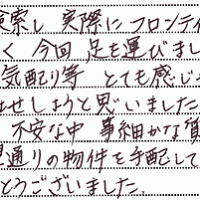 索し 実際に フロンティ
く 今回 足を運びまし
気配り等 とても感じ
せしようと思いました
不安な中 事細かな質
通りの物件を手配して
とうございました.